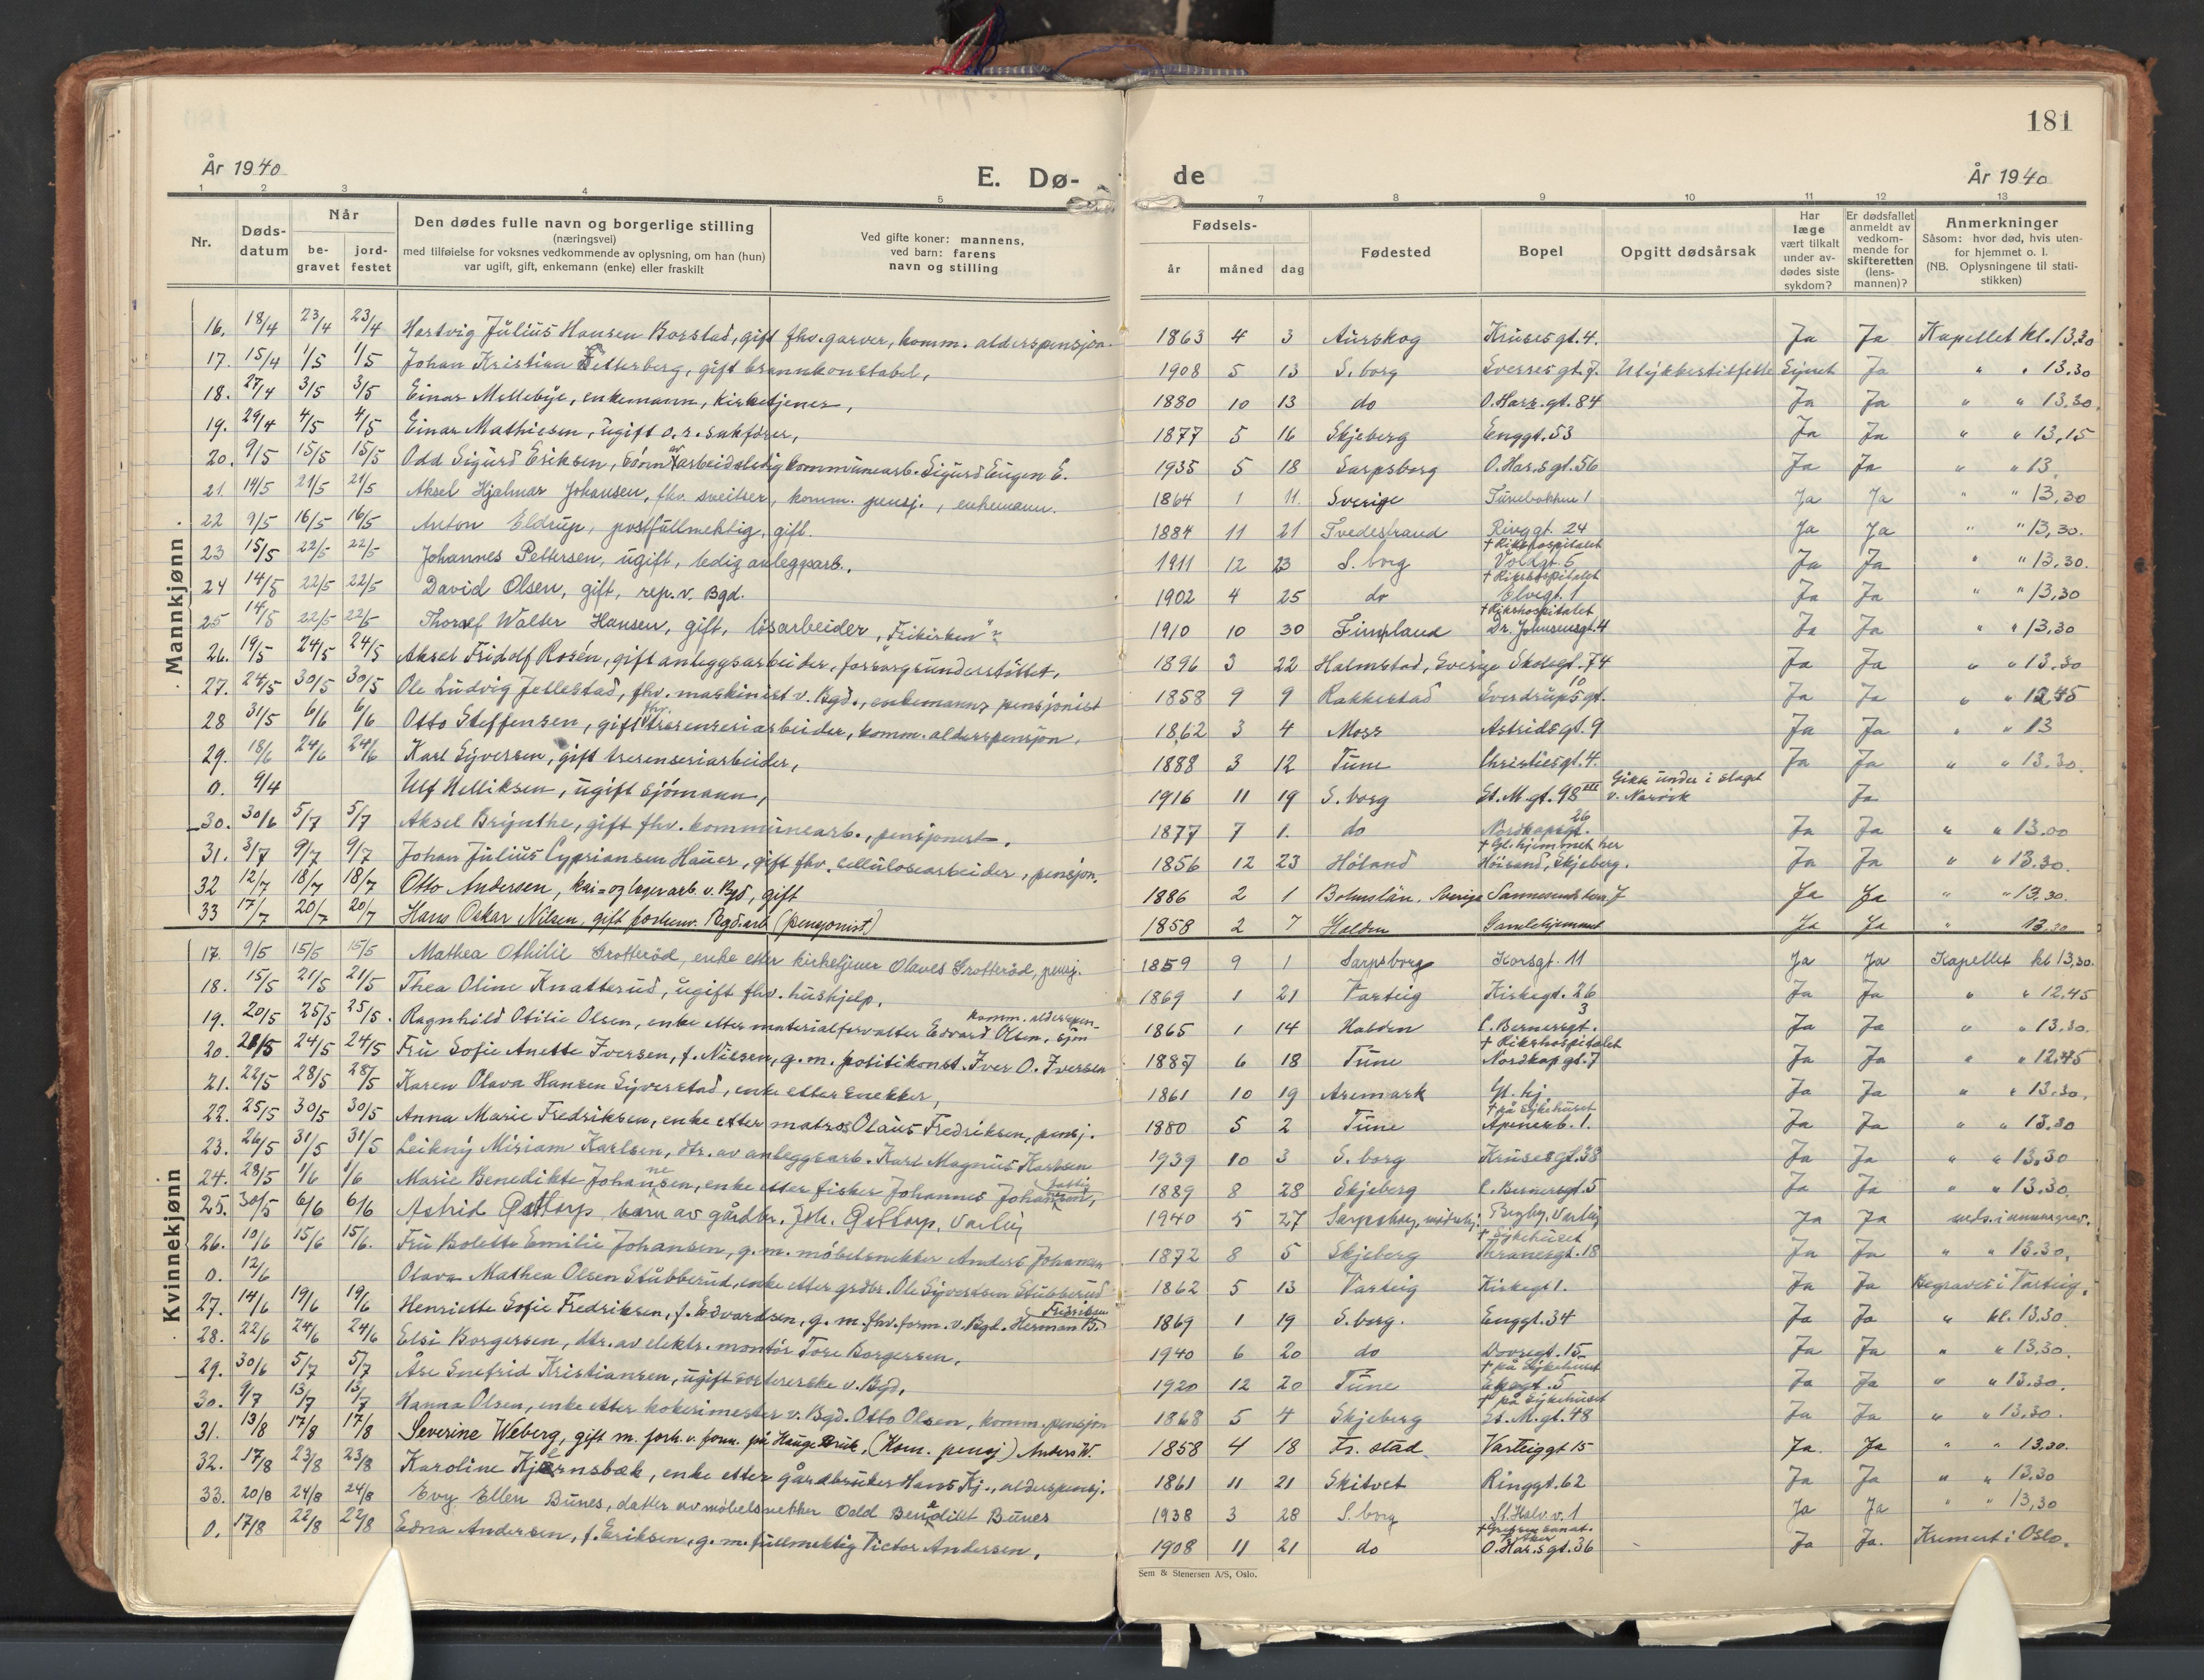 181
År 1940
E. Dø-
de
År 1940
1 2 3 4 5 7 8 9 10 11 12 13
Nr.
Døds-
datum
Når
be-
gravet
jord-
festet
Den dødes fulle navn og borgerlige stilling
(næringsvei)
med tilføielse for voksnes vedkommende av oplysning, om han (hun)
var ugift, gift, enkemann (enke) eller fraskilt
Ved gifte koner: mannens,
ved barn: farens
navn og stilling
Fødsels-
år måned dag
Fødested
Bopel
Opgitt dødsårsak
Har
læge
vært tilkalt
under av-
dødes siste
sykdom?
Er dødsfallet
anmeldt av
vedkom-
mende for
skifteretten
(lens-
mannen)?
Anmerkninger
Såsom: hvor død, hvis uten-
for hjemmet o. l.
(NB. Oplysningene til stati-
stikken)
Mannkjønn
16. 18/4 23/4 23/4 Hartvig Julius Hansen Borstad, gift fhv. garver, komm. alderspensjon. 1863 4 3 Aurskog Kruses gt. 4. Ja Ja Kapellet kl. 13.30
17. 15/4 1/5 1/5 Johan Kristian Zetterberg, gift brannkonstabel, 1908 5 13 S.borg Sverres gt. 7. Ulykkestilfelle Synet Ja " " 13.30
18. 27/4 3/5 3/5 Einar Mellebye, enkemann, kirketjener, 1880 10 13 do O. Hars. gt. 84 Ja Ja " " 13.30
19. 29/4 4/5 4/5 Einar Mathiesen, ugift o.r. sakfører, 1877 5 16 Skjeberg Enggt. 53 Ja Ja " " 13,15
20. 9/5 15/5 15/5 Odd Sigurd Eriksen, sønn av arbeidsledig kommunearb. Sigurd Eugen E. 1935 5 18 Sarpsborg O. Har.s gt. 56 Ja Ja " " 13
21 14/5 21/5 21/5 Aksel Hjalmar Johansen, fhv. sveitser, komm. pensj., enkemann. 1864 1 11. Sverige Tunebakken 1 Ja Ja " " 13,30
22 9/5 16/5 16/5 Anton Eldrup, postfullmektig, gift. 1884 11 21 Tvedestrand Ringgt. 24 Ja Ja " " 13,30.
23 15/5 22/5 22/5 Johannes Pettersen, ugift, ledig anleggsarb., 1911 12 23 S. borg † Rikshospitalet Voldgt. 5 Ja Ja " " 13.30.
24 14/5 22/5 22/5 David Olsen, gift, rep. v. Bgd. 1902 4 25 do † Rikshospitalet Elvegt. 1 Ja Ja " " 13,30
25 14/5 22/5 22/5 Thoralf Walter Hansen, gift, løsarbeider, "Frikirken" 1910 10 30 Fimpland † Rikshospitalet Dr. Johnsensgt. 4 Ja Ja " " 13.30
26. 19/5 24/5 24/5 Aksel Fridolf Rosén, gift anleggsarbeider, forsorgsunderstøttet, 1896 3 22 Halmstad, Sverige Skolegt. 74 Ja Ja " " 13.30
27. 24/5 30/5 30/5 Ole Ludvig Jellestad, fhv. maskinist v. Bgd., enkemann, pensjonist 1858 9 9 Rakkestad Sverdrups gt. 10 Ja Ja " " 12.45
28 31/5 6/6 6/6 Otto Steffensen, gift fhv. trerenseriarbeider, komm. alderspensjon. 1862 3 4 Moss Astrids gt. 9 Ja Ja " " 13
29. 18/6 24/6 24/6 Karl Syversen, gift trerenseriarbeider, 1888 3 12 Tune Christies gt. 4. Ja Ja " " 13.30.
0. 9/4 Ulf Helliksen, ugift sjømann, 1916 11 19 S. borg St. M. gt. 98 III Gikk under i slaget v. Narvik Ja
30. 30/6 5/7 5/7 Aksel Brynthe, gift fhv. kommunearb., pensjonert. 1877 7 1. do Nordkapsgt. 26 Ja Ja " " 13.00
31. 3/7 9/7 9/7 Johan Julius Cypriansen Hauer, gift fhv. cellulosearbeider, pensjon. 1856 12 23 Høland † Gl. hjemmet her Høisand, Skjeberg. Ja Ja " " 13.30.
32 12/7 18/7 18/7 Otto Andersen, kai= og lagerarb. v. Bgd, gift 1886 2 1 Bohuslän. Sverige Ja Ja " " 13.30.
33 17/7 20/7 20/7 Hans Oskar Nilsen, gift forhenv. Bgd. arb. (pensjonist) 1858 2 7 Halden Gamlehjemmet Ja Ja " 13.30
Kvinnekjønn
17. 9/5 15/5 15/5 Mathea Othilie Grotterød, enke etter kirketjener Olaves Grotterød, pensj. 1859 9 1 Sarpsborg Korsgt. 11 Ja Ja Kapellet kl 13,30.
18. 15/5 21/5 21/5 Thea Oline Knatterud, ugift fhv. hushjelp, 1869 1 21 Varteig Kirkegt. 26 Ja Ja " " 12.45
19. 20/5 25/5 25/5. Ragnhild Otilie Olsen, enke etter materialforvalter Edvard Olsen, komm. alderspensjon 1865 1 14 Halden C. Bernersgt. 3 Ja Ja " " 13.30.
20. 21/5 24/5 24/5 Fru Sofie Anette Iversen, f. Nilsen, g. m. politikonst. Iver O. Iversen 1887 6 18 Tune † Rikshospitalet Nordkap gt. 7 Ja Ja " " 12.45
21. 22/5 28/5 28/5 Karen Olava Hansen Syverstad, enke etter snekker, 1861 10 19 Aremark Gl. hj. Ja Ja " " 13.30.
22. 25/5 30/5 30/5 Anna Marie Fredriksen, enke etter matros Olaus Fredriksen, pensj. 1880 5 2 Tune † på Sykehuset Apenesb. 1. Ja Ja " " 13.30
23. 26/5 31/5 31/5 Leikny Miriam Karlsen, dtr. av anleggsarb. Karl Magnus Karlsen 1939 10 3 S. borg Kruses gt. 38 Ja Ja " " 13.30
24. 28/5 1/6 1/6 Marie Benedikte Johannesen, enke etter fisker Johannes Johannesen, 1889 8 28 Skjeberg C. Bernersgt. 5 Ja Ja " " 13.30.
25. 30/5 6/6 6/6 Astrid Gottorp, barn av gårdbr. Joh. Gottorp, Varteig 1940 5 27 Sarpsborg, mødrehj. Bygby, Varteig Ja Ja
26. 10/6 15/6 15/6. Fru Bolette Emilie Johansen, g. m. møbelsnekker Anders Johansen 1872 8 5 Skjeberg † Sykehuset Thranesgt. 18 Ja Ja " " 13.30.
0. 12/6 Olava Mathea Olsen Stubberud, enke etter grdbr. Ole Syvertsen Stubberud 1862 5 13 Varteig Kirkegt 1. Ja Ja Begravet i Varteig.
27. 14/6 19/6 19/6 Henriette Sofie Fredriksen, f. Edvardsen, g. m. fhv. form. v. Bgd. Herman B. Fredriksen 1869 1 19 S. borg. Enggt. 34 Ja Ja " kl. 13.30
28. 22/6 24/6 24/6 Elsi Borgersen, dtr. av elektr. montør Tore Borgersen, 1940 6 20 do Dovregt. 15 Ja Ja " " 13.30.
29. 30/6 5/7 5/7 Åse Snefrid Kristiansen, ugift sorsterske v. Bgd, 1920 12 20 Tune † på Sykehuset Ekegt. 5 Ja Ja " " 13.30.
30. 9/7 13/7 13/7 Hanna Olsen, enke etter kokerimester v. Bgd. Otto Olsen, komm. pensjon 1868 5 4 Skjeberg † på Sykehuset St. M. gt. 48 Ja Ja " " 13.30.
31. 13/8 17/8 17/8 Severine Weberg, gift m. forh. v. form. på Hauge Bruk, (Kom. pensj) Anders W. 1858 4 18 Fr. stad Varteiggt 15 Ja. Ja " " 13.30.
32. 17/8 23/8 23/8 Karoline Kjærnsbæk, enke etter gårdbruker Hans Kj., alderspensj. 1861 11 21 Skitvet Ringgt. 62 Ja Ja " " 13.30
33. 20/8 24/8 24/8 Evy Ellen Bunes, datter av møbelsnekker Odd Benedikt Bunes 1938 3 28 S. borg St. Halv. v. 1 Ja Ja " " 13,30
0. 17/8 22/8 22/8 Edna Andersen, f. Eriksen, g. m. fullmektig Victor Andersen, 1908 11 21 do † Grefsen sanat. O. Har.s gt. 36 Ja Ja. Kremert i Oslo.
Sem & Stenersen A/S, Oslo.